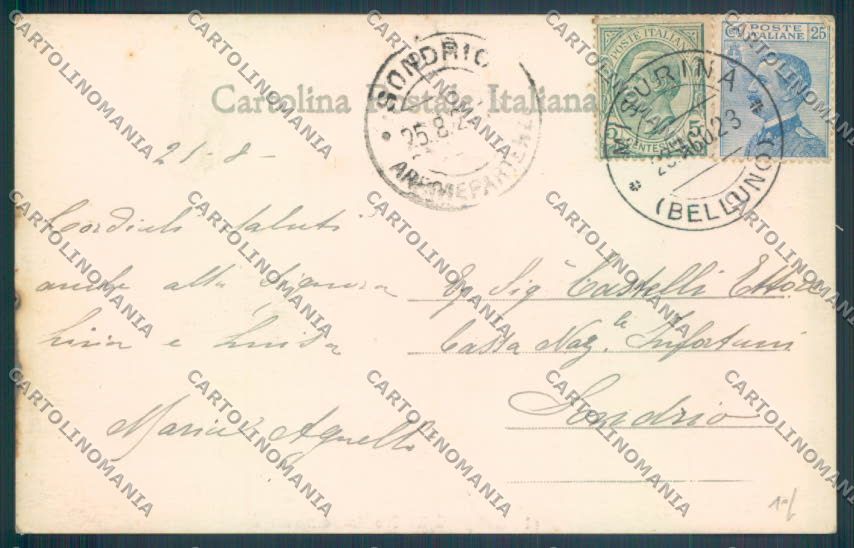 Cartolina Postale Italiana
POSTE ITALIANE
POSTE ITALIANE 25
5 CENTESIMI 5
SONDRIO
25.8.2
MISURINA
AGO 23
(BELLUNO)
21-8-
Cordiali saluti
anche alla Signora
Lina e Luisa
Maria Agnelli
Eg Sig Castelli Ettore
Cassa Naz. la Infortuni
Sondrio
CARTOLINOMANIA